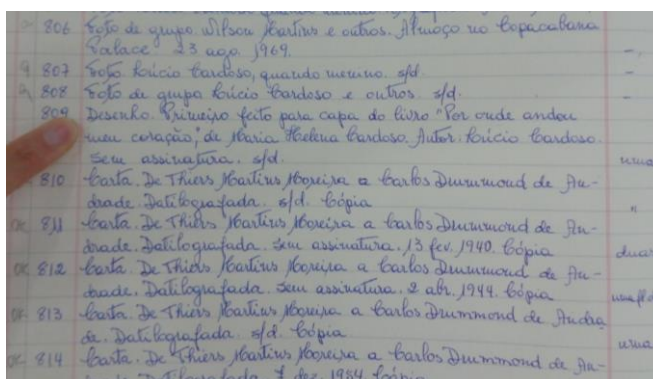 806 Foto de grupo. Wilson Martins e outros. Almoço no Copacabana
Palace. 23 ago. 1969.
807 Foto. Lúcio Cardoso, quando menino. s/d.
808 Foto de grupo Lúcio Cardoso e outros. s/d.
809 Desenho. Primeiro feito para capa do livro "Por onde andou
meu coração", de Maria Helena Cardoso. Autor: Lúcio Cardoso.
Sem assinatura. s/d. uma
810 Carta. De Thiers Martins Moreira a Carlos Drummond de An-
drade. Datilografada. s/d. Cópia "
OK 811 Carta. De Thiers Martins Moreira a Carlos Drummond de An-
drade. Datilografada. Sem assinatura. 13 fev. 1940. Cópia duas
OK 812 Carta. De Thiers Martins Moreira a Carlos Drummond de An-
drade. Datilografada. Sem assinatura. 2 abr. 1944. Cópia
OK 813 Carta. De Thiers Martins Moreira a Carlos Drummond de Andra
de. Datilografada. s/d. Cópia uma
OK 814 Carta. De Thiers Martins Moreira a Carlos Drummond de An-